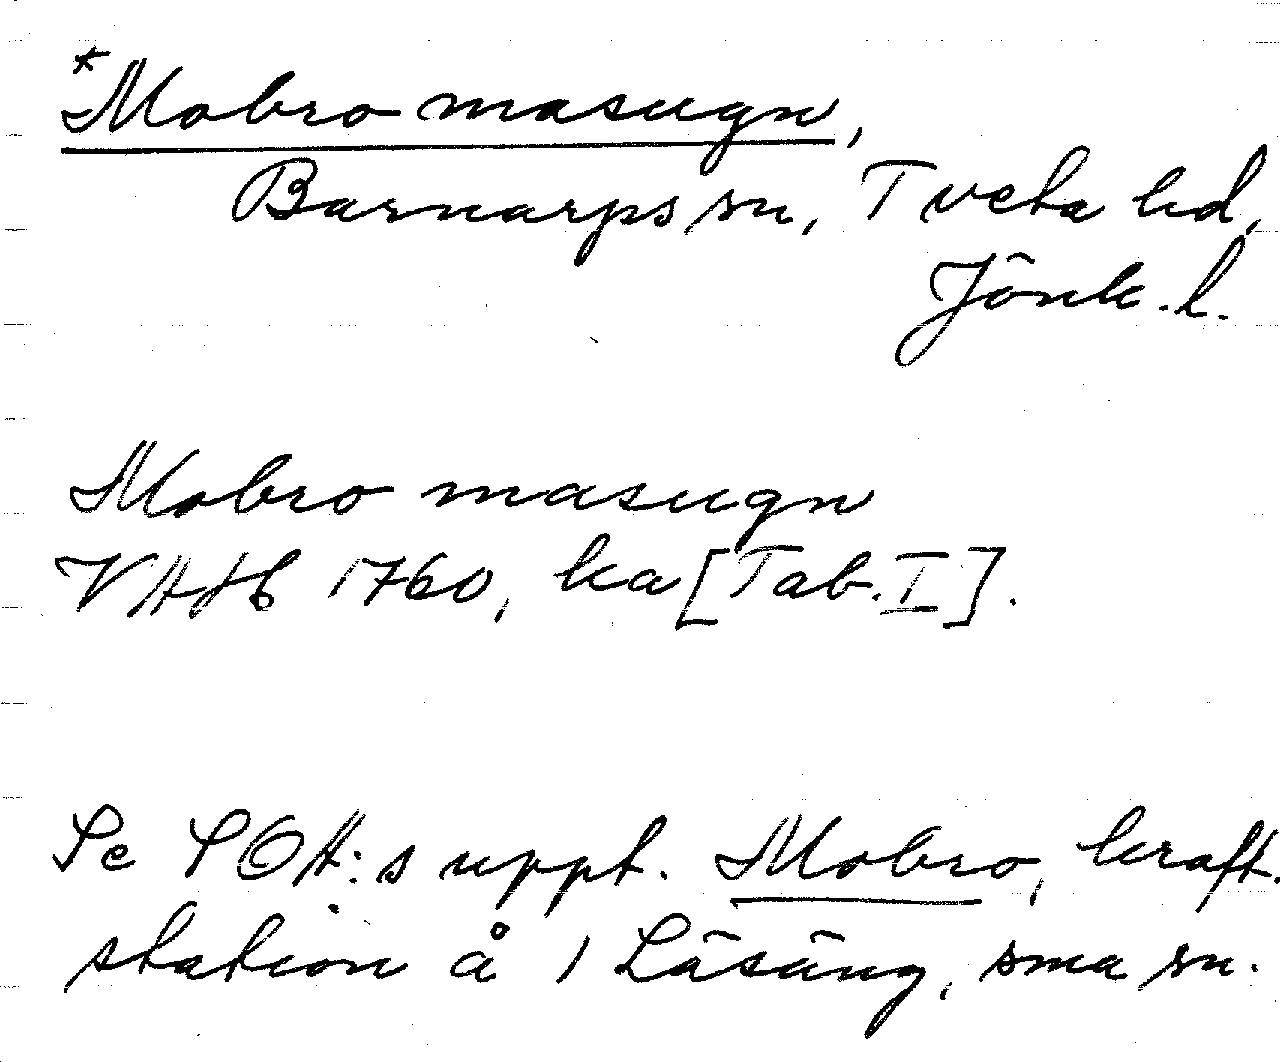 *Mobro masugn,
Barnarps sn, Tveta hd,
Jönk. l.
Mobro masugn
VAHb 1760, ka [Tab. I].
Se SOA:s uppt. Mobro, kraft-
station å 1 Läsäng, sma sn.